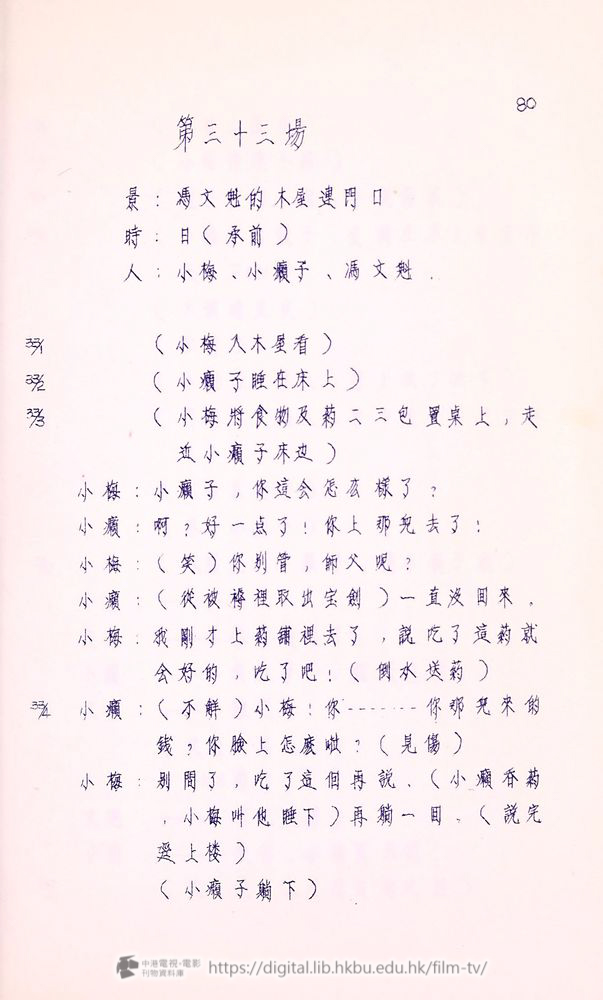 80
第三十三場
景：馮文魁的木屋連門口
時：日（承前）
人：小梅、小癩子、馮文魁.
33/1 （小梅入木屋看）
33/2 （小癩子睡在床上）
33/3 （小梅將食物及葯二三包置桌上，走
近小癩子床边）
小梅：小癩子，你這会怎么樣了？
小癩：啊？好一点了！你上那兒去了！
小梅：（笑）你别管，師父呢？
小癩：（從被褥裡取出宝劍）一直沒回來.
小梅：我剛才上葯舖裡去了，説吃了這葯就
会好的，吃了吧！（倒水送葯）
33/4 小癩：（不解）小梅！你-------你那兒來的
錢？你臉上怎麽啦？（見傷）
小梅：别問了，吃了這個再説.（小癩吞葯
，小梅叫他睡下）再躺一回.（説完
上楼）
（小癩子躺下）
中港電視·電影
刊物資料庫
https://digital.lib.hkbu.edu.hk/film-tv/